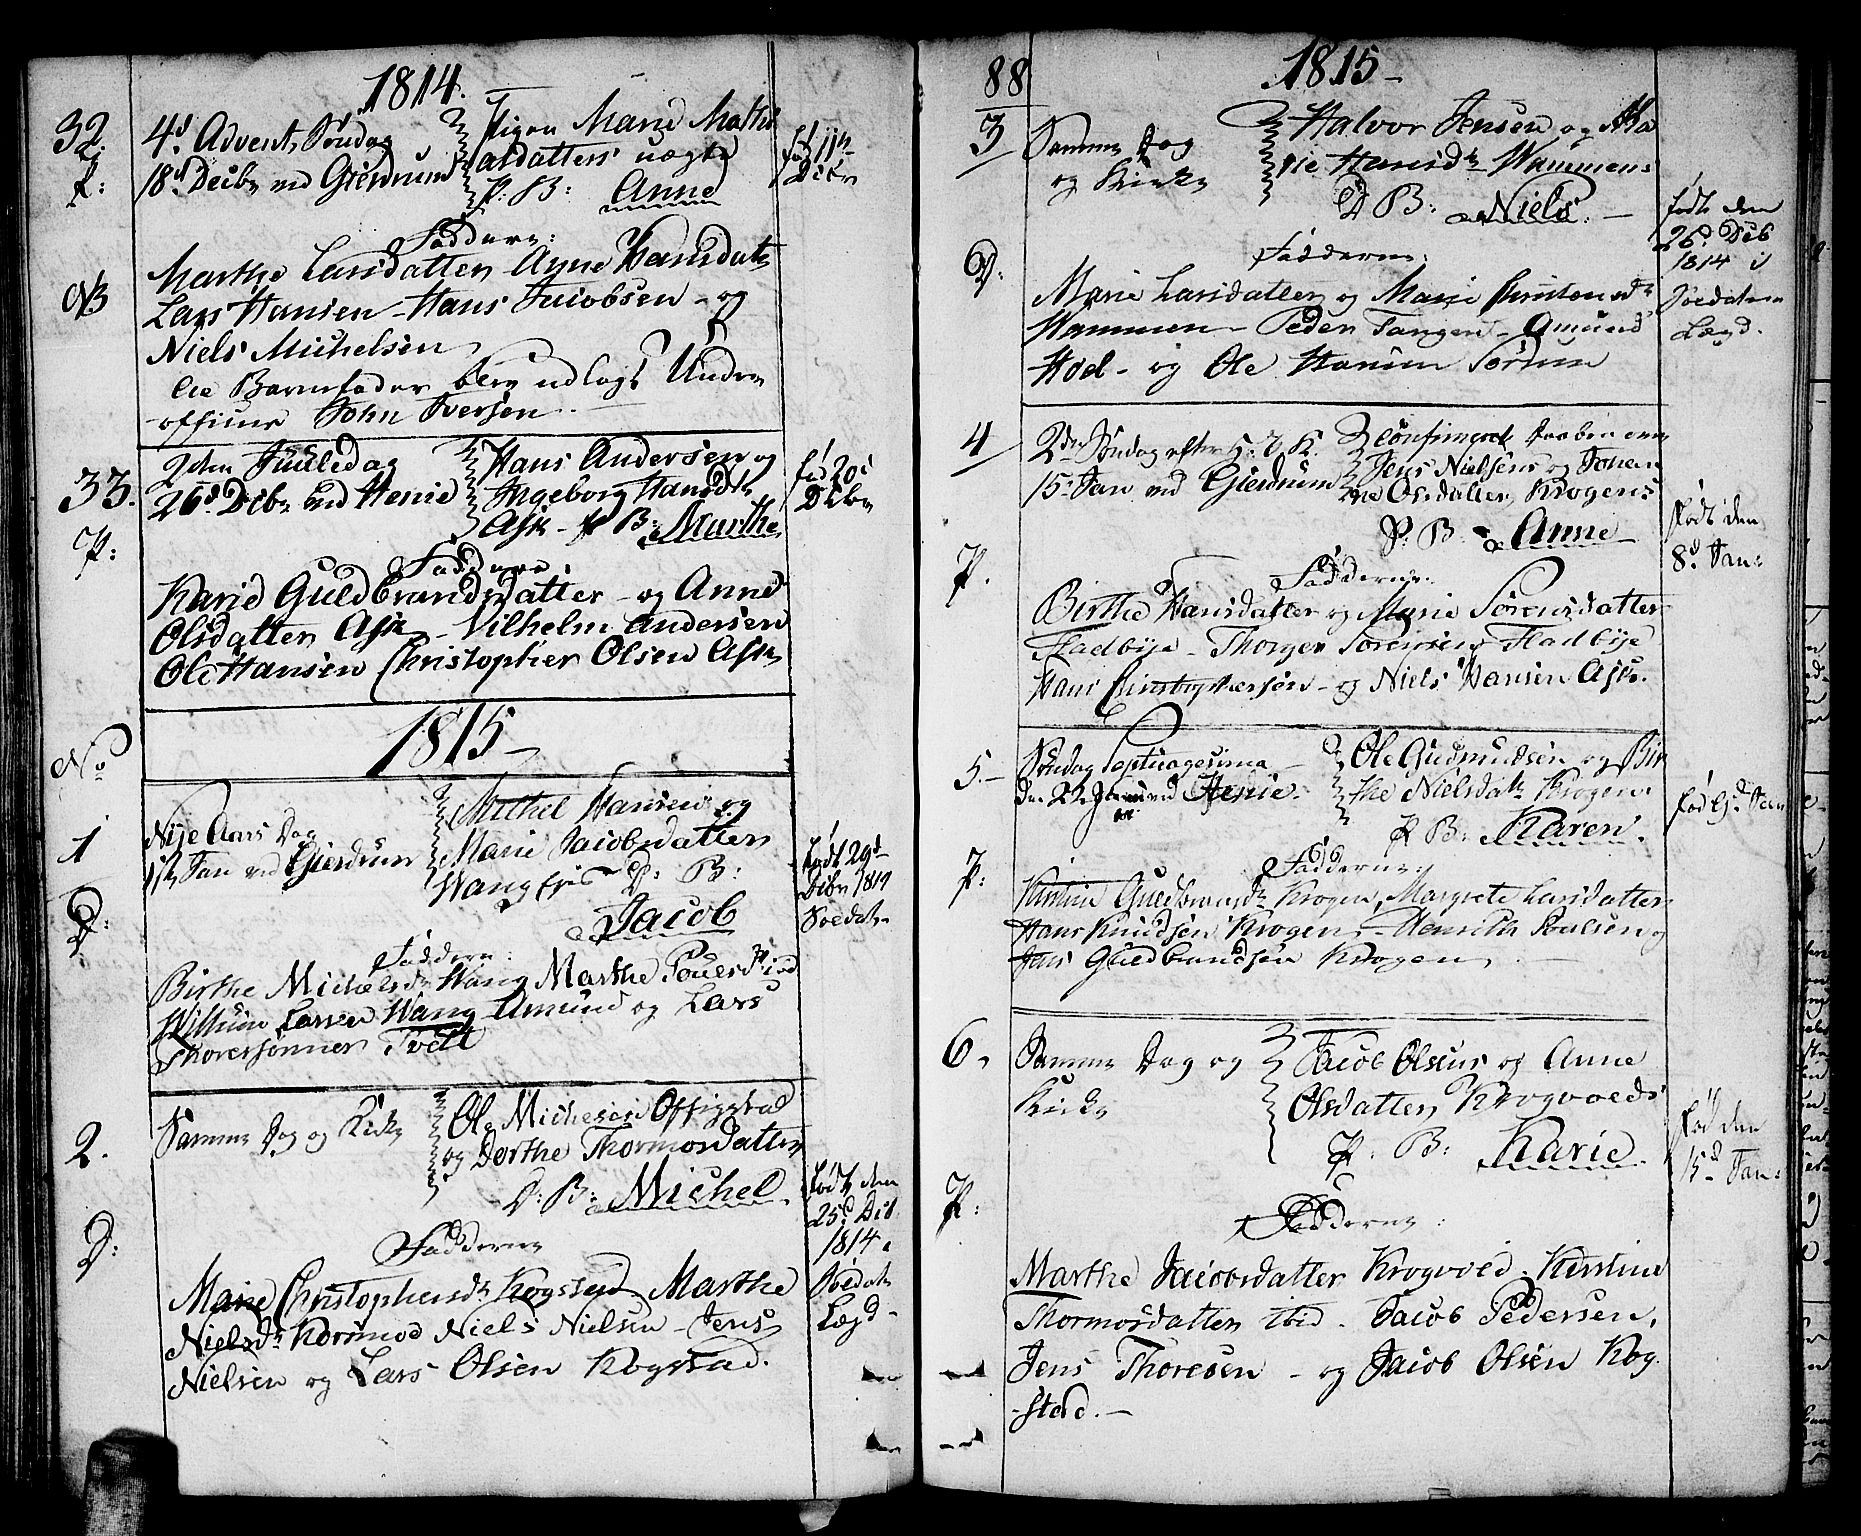 1814.
32.
P:
NB
4d Advent, Søndag
18d Decbr ved Gierdrum
Pigen Marie Mathi
asdatters uægte
P. B: Anne
fød 11te
Decbr
Faddere:
Marthe Larsdatter Anne Hansdatr
Lars Hansen - Hans Jacobsen - og
Niels Michelsen
Barnefader blev udlagt Under
officier John Iversen.
33.
P:
2den Juuledag
26d Decbr ved Henie
Hans Andersen og
Ingeborg Hansdtr
Ask - P B: Marthe
fød 20
Decbr
Faddere:
Karie Guldbrandsdatter - og Anne
Olsdatter Ask - Vilhelm Andersen
Ole Hansen Christopher Olsen Ask
No
1815
1
D:
Nye Aars Dag
1ste Jan ved Gierdrum
Michel Hansen og
Marie Jacobsdatter
Wang D: B:
Jacob
født 29d
Decbr 1814
Soldatr
Faddere:
Birthe Michelsdr Wang Marthe
Larsen Wang Amund og Lars
Thoresønner Tvett
2.
D:
Samme Dag og Kirke
Ole Michelsen
og Dorthe Thormosdatter
D: B: Michel
født den
25d Dec
1814 i
Soldatr
Lægd -
Fadderne
Marie Christophersdtr Kogstad Marthe
Nielsdr Korsmoe Niels Nielsen - Jens
Nielsen og Lars Olsen Kogstad.
88
1815 -
3
D:
Samme Dag
og Kirke
Halvor Jensen og Ma
rie Hansdtr Wammens
D B: Niels. -
født den
26d Dec
1814 i
Soldaten
Lægd.
Fadderne:
Marie Larsdatter og Marie Christensdr
Wammen - Peder Tangen - Amund
Hoel - og Ole Hansen Sørum
4
P.
2den Søndag efter H. 3 K.
15. Jan ved Gierdrum
Jens Nielsens og Johan
ne Olsdatter Krogens
P: B: Anne
født den
8d Jan:
Fadderne:
Birthe Hansdatter og Marie Sørensdatter
Fladbye - Thorger Sørensen Fladbye
Hans Christophersen - og Niels Hansen Ask.
5. -
P:
Søndag Septuagesima -
den 22 Januar ved Henie -
Ole Gudmundsen og Bir
the Nielsdatr Krogen.
P B: Karen.
Fadderne:
Kirstine Guldbrandsdr Krogen, Margrete Larsdatter
Hans Knudsen Krogen, - Henrich Poulsen og
Jens Guldbrandsen Krogen
6.
P:
Samme Dag og
Kirke
Jacob Olsens og Anne
Olsdatter Krogvoeds
P: B: Karie
fød den
15d Jan:
Fadderne:
Marthe Jacobsdatter Krogvoed. Kirstine
Thormosdatter ibid. Jacob Pedersen,
Jens Thoresen - og Jacob Olsen Kog
-stad. -